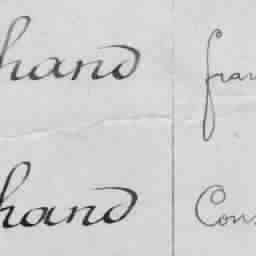 hand
fran
hand
Cons